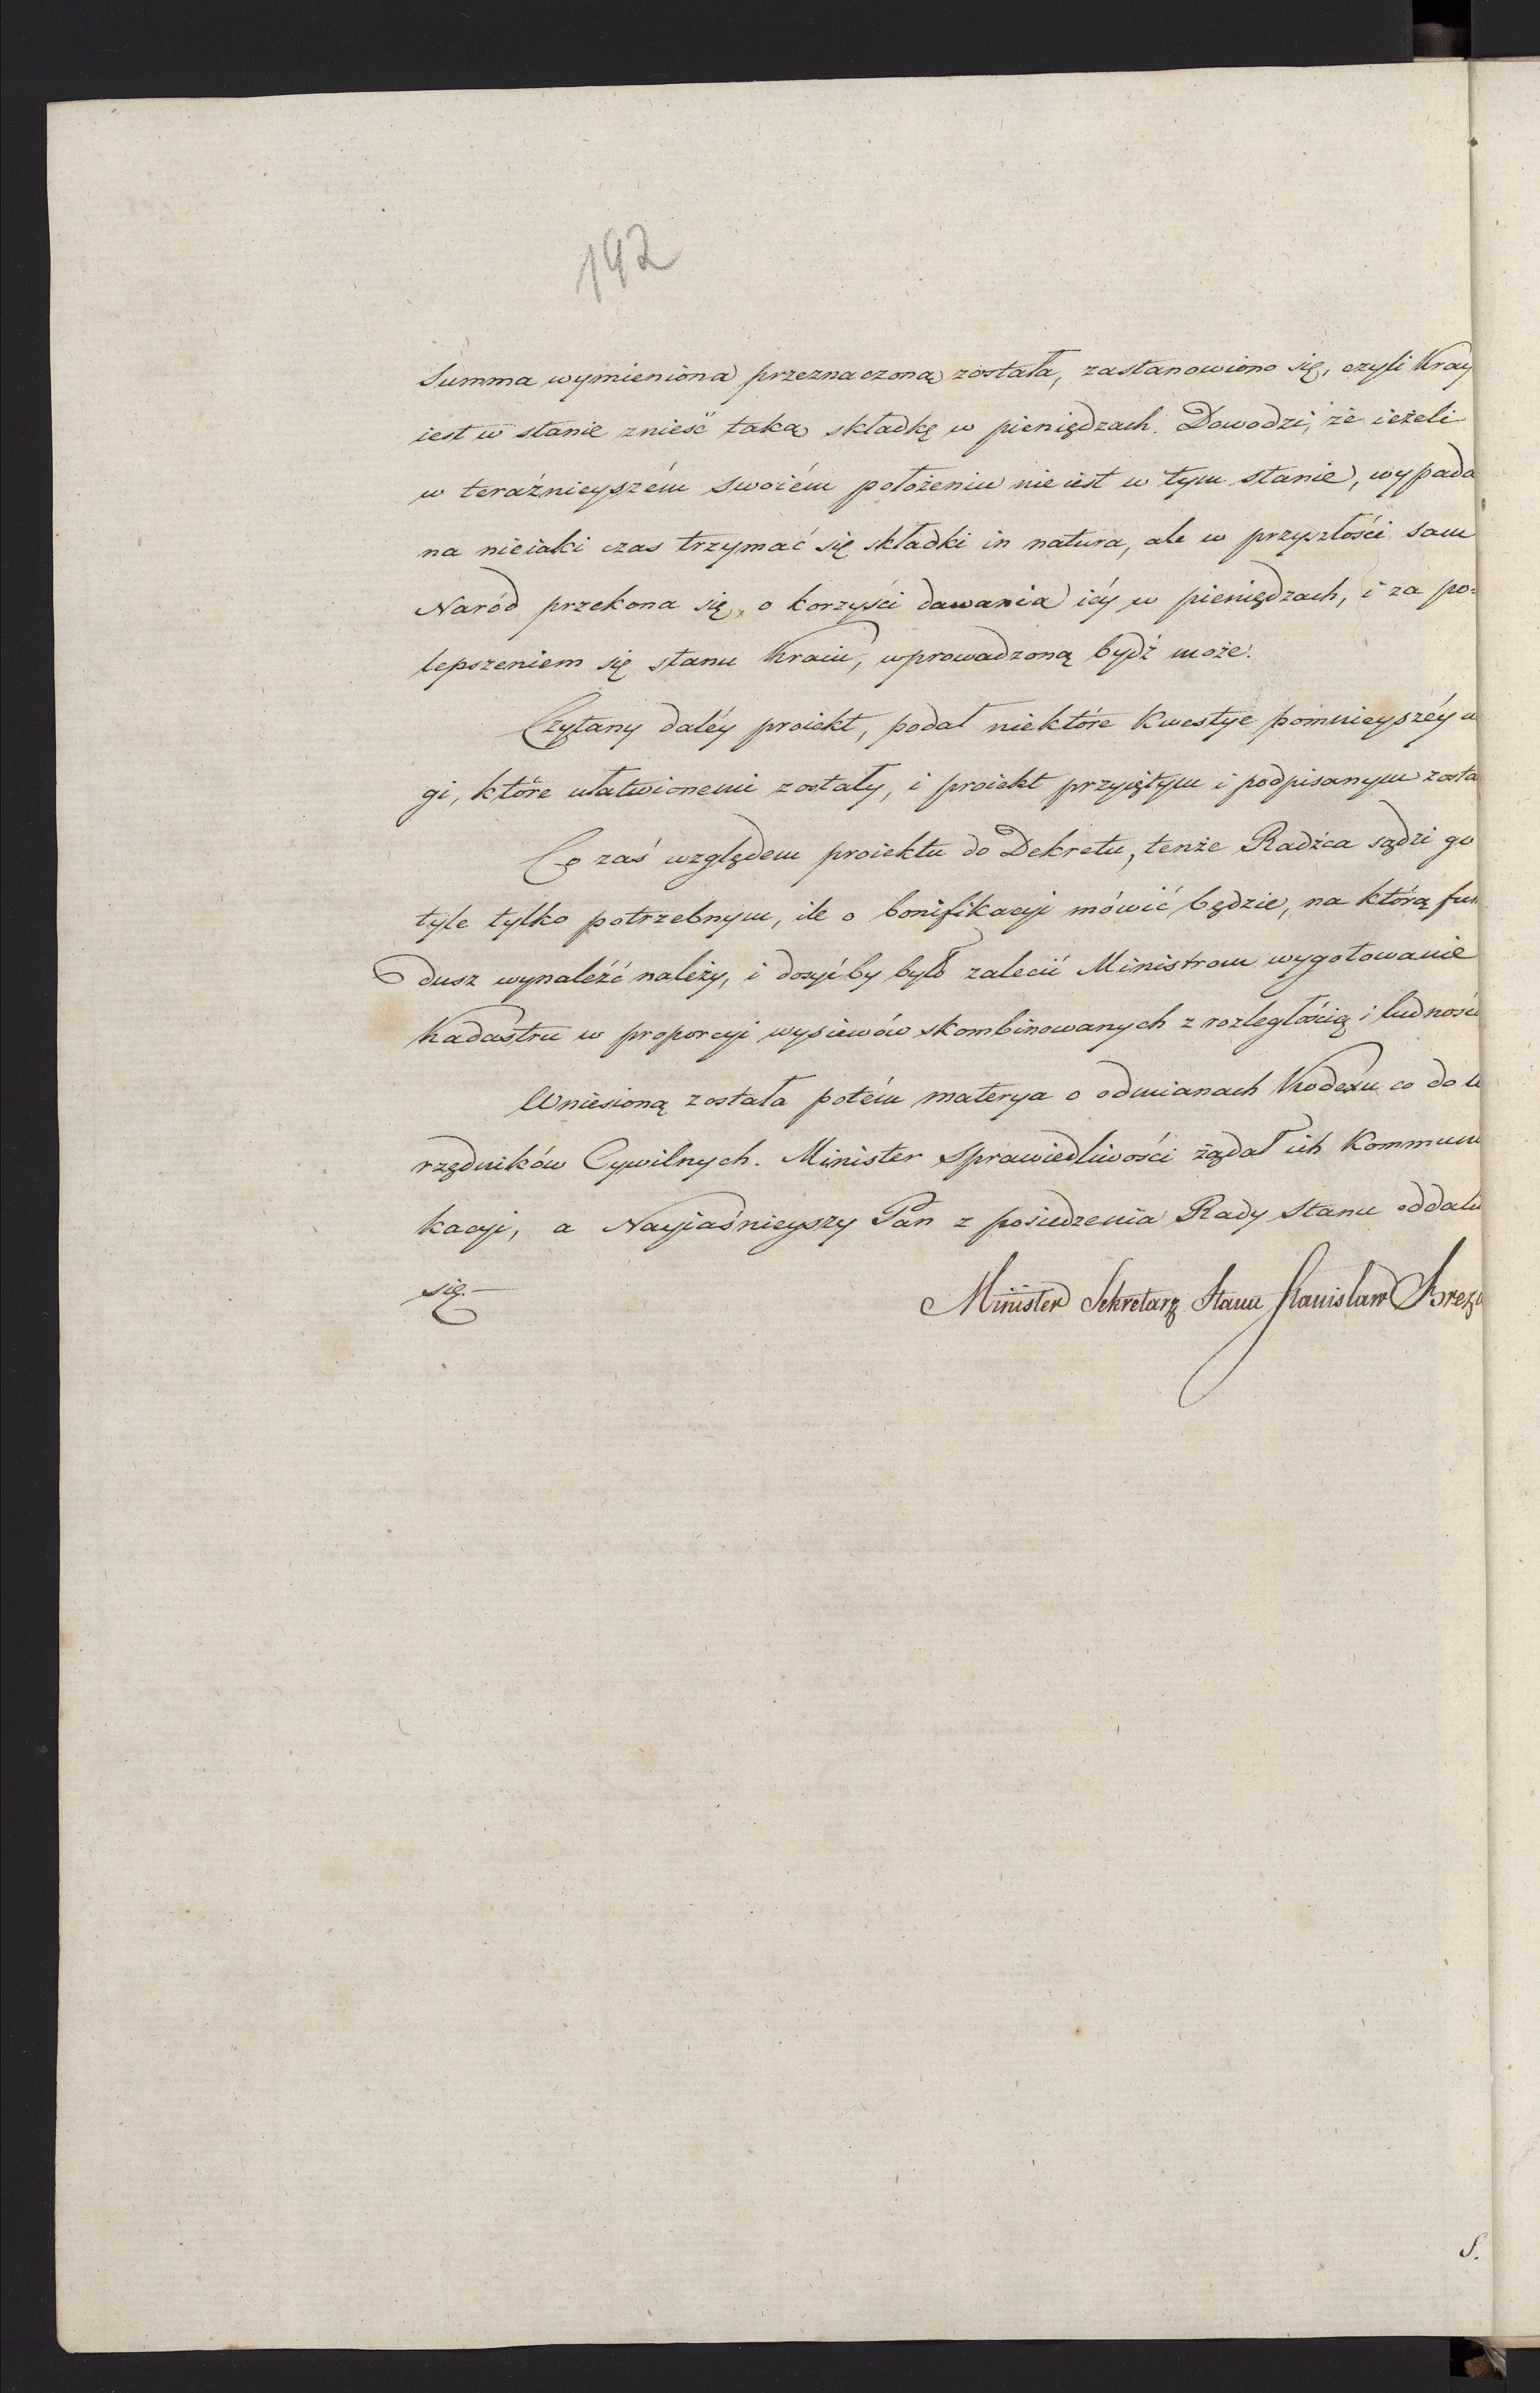 192
Summa wymieniona przeznaczoną została, zastanowiono się, czyli Kray
iest w stanie znieść taką składkę w pieniędzach. Dowodzi, że ieżeli
w teraźnieyszém swoiém położeniu nie iest w tym stanie, wypada
na nieiaki czas trzymać się składki in natura, ale w przyszłości sam
Naród przekona się, o korzyści dawania iéy w pieniędzach, i za po=
lepszeniem się stanu Kraiu, wprowadzoną bydź może.
Czytany daléy proiekt, podał niektóre Kwestye pomnieyszéy u
gi, które ułatwionemi zostały, i proiekt przyiętym i podpisanym zosta
Co zaś względem proiektu do Dekretu, tenże Radźca sądzi go
tyle tylko potrzebnym, ile o bonifikacyi mówić będzie, na którą fun
dusz wynaléźć należy, i dosyć by było zalecić Ministrom wygotowanie
Kadastru w proporcyi wysiewów skombinowanych z rozległością i ludnośc
Wniesioną została potém materya o odmianach Kodexu co do U
rzędników Cywilnych. Minister Sprawiedliwości żądał ich Kommuni
kacyi, a Nayiaśnieyszy Pan z posiedzenia Rady Stanu oddalił
się.—
Minister Sekretarz Stanu Stanisław Breza
S.